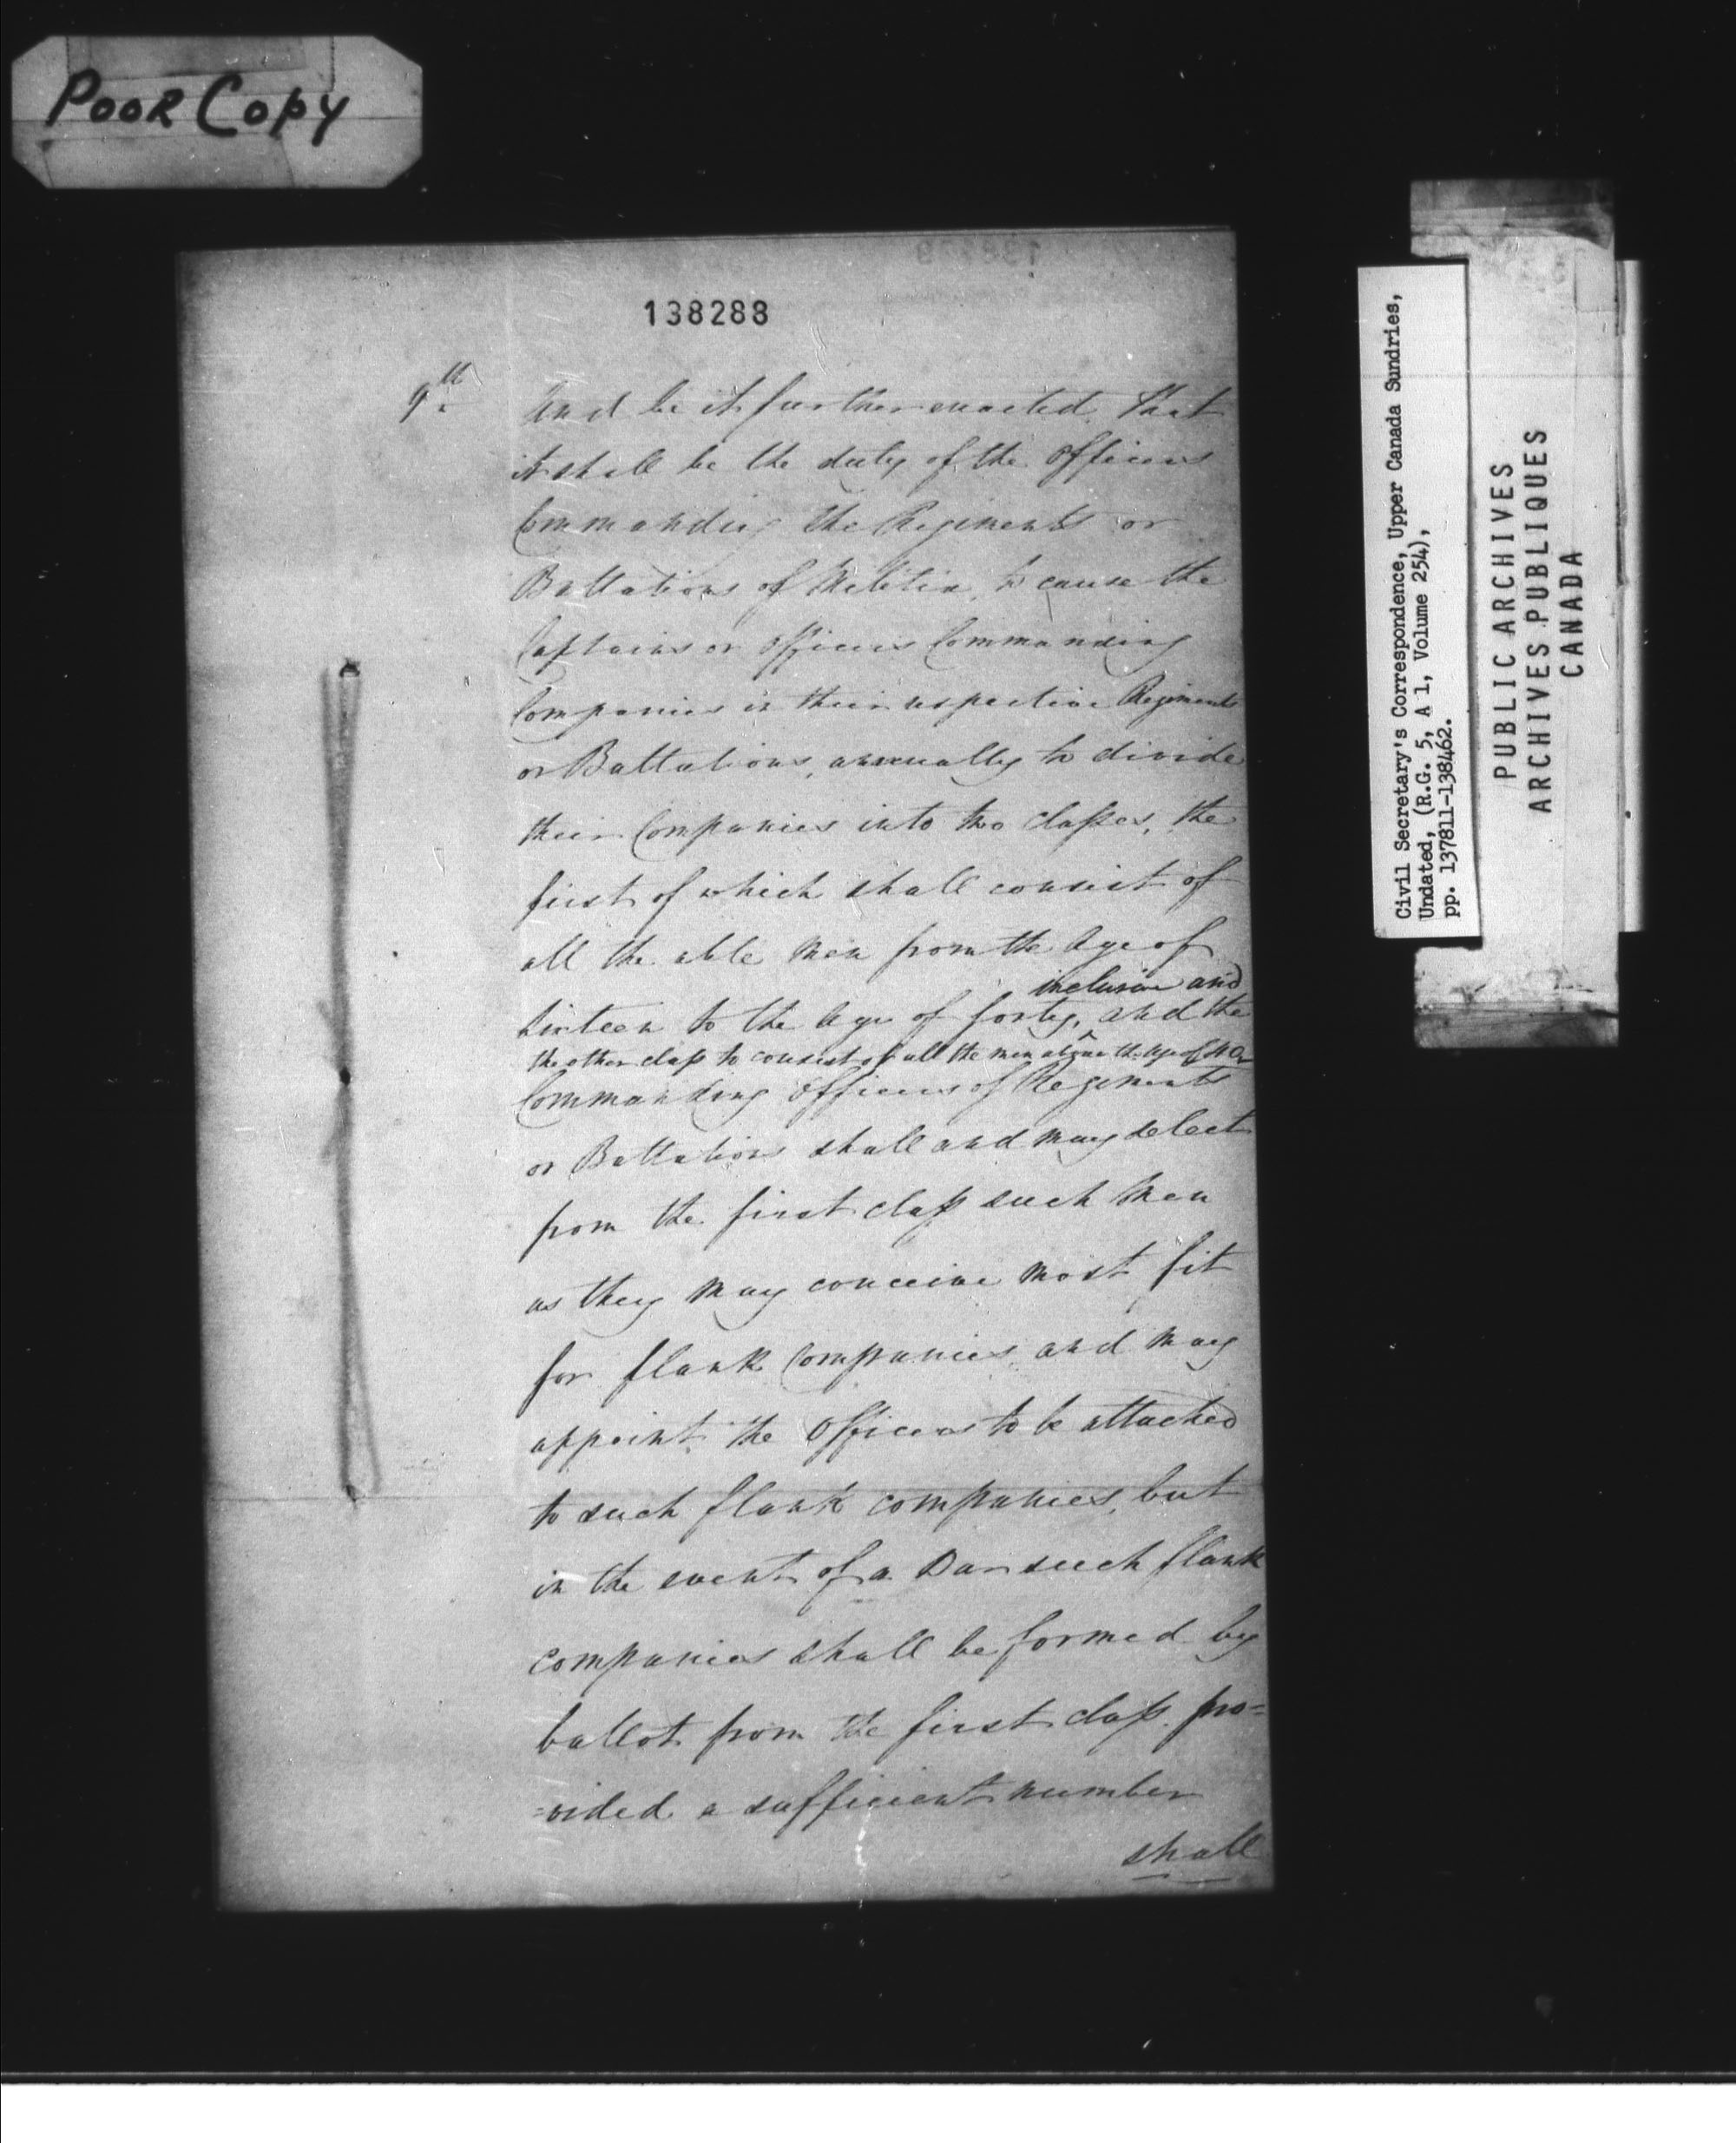 Poor Copy
138288
9th And be it further enacted that
it shall be the duty of the Officers
Commanding the Regiments or
Battalions of Militia, to cause the
Captains or Officers Commanding
Companies in their respective Regiments
or Battalions, annually to divide
their Companies into two classes, the
first of which shall consist of
all the able Men from the Age of
inclusive and
sixteen to the Age of forty, and the
the other class to consist of all the men above the age of 40
Commanding Officers of Regiments
or Battalions shall and may select
from the first class such Men
as they may conceive most fit
for flank Companies and may
appoint the Officers to be attached
to such flank companies, but
in the event of a War such flank
companies shall be formed by
ballot from the first class pro=
=vided a sufficient number
shall
Civil Secretary's Correspondence, Upper Canada Sundries,
Undated, (R.G. 5, A 1, Volume 254),
pp. 137811-138462.
PUBLIC ARCHIVES
ARCHIVES PUBLIQUES
CANADA